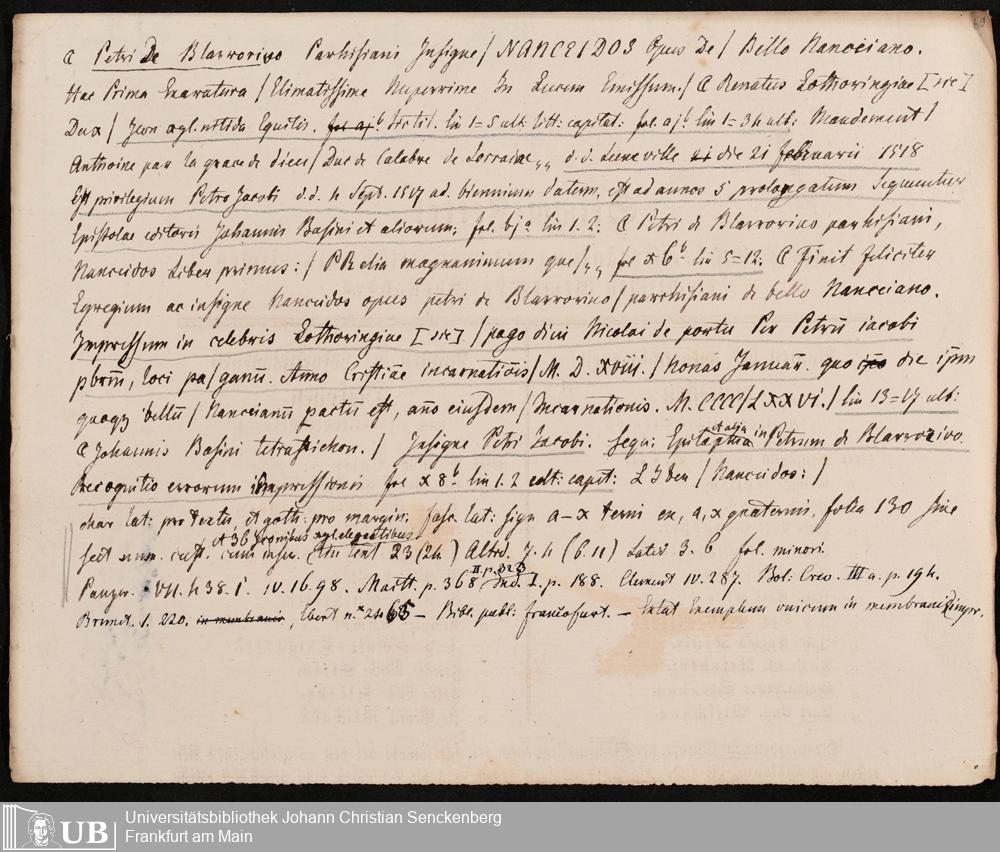 60
C Petri De Blarrorivo Parhisiani Insigne / NANCEIDOS Opus De / Bello Nanceiano.
Hac Prima Exaratura / Elimatissime Nuperrime In Lucem Emissum. / C Renatus Lothoringiae [sic]
Dux / Icon xyl. nitida Equitis. fol. aj b lin 1=5 ult: litt: capital: fol. aj b lin 1=34 ult: Mandement /
Anthoine par la grace de dieu / Duc de Calabre de Lorraine,, d. d. Luneville die 21 februarii 1518
Est privilegium Petro Jacobi d. d. 4 Sept. 1517 ad biennium datum, est ad annos 5 prolongatum Sequuntur
Epistolae editoris Johannis Basini et aliorum; fol. bj a lin 1. 2: C Petri de Blarrorivo parhisiani,
Nanceidos Liber primus: / PRelia magnanimum que /,, fol x 6 b lin 5=12: C Finit feliciter
Egregium ac insigne Nanceidos opus petri de Blarrorivo / parrhisiani de bello Nanceiano.
Impressum in celebris Lothoringiae [sic] / pago divi Nicolai de portu Per Petrū iacobi
pbrm̄, loci pa/ganū. Anno Cristiāe incarnatiōis / M. D. xviii. / Nonas Januar̄. quo die ipm̄
quoqz bellū / Nanceianū pactū est, año eiusdem / Incarnationis. M. CCCC / LXXVI. / lin 13=17 ult:
C Johannis Basini tetrastichon. / Insigne Petri Jacobi. Sequ: Epitaphia et alia in Petrum de Blarrorivo.
Recognitio errorum impressionis fol x 8 b lin 1. 2 col: capit: LIber / Nanceidos: /
char lat: pro textu, et goth: pro margin: fasc. lat: sign a–x terni ex, a, x quaternis, folia 130 sine
sect num. cust. cum sign. et 36 iconibus xyl. elegantibus (Lin text 23 (24) Altid. 7. 4 (6. 11) Latit 3. 6 fol. minori.
Panzer. VII. 438. 1. IV. 16. 98. Maitt. p. 368 II. p. 323 Ind. I. p. 188. Clement IV. 287. Bol: Crev. III a. p. 194.
Brunet. I. 220. in membranis, Ebert n.r 2465 – Bibl. publ: francofurt. – Extat Exemplum unicum in membranis impr.
Universitätsbibliothek Johann Christian Senckenberg
Frankfurt am Main
UB